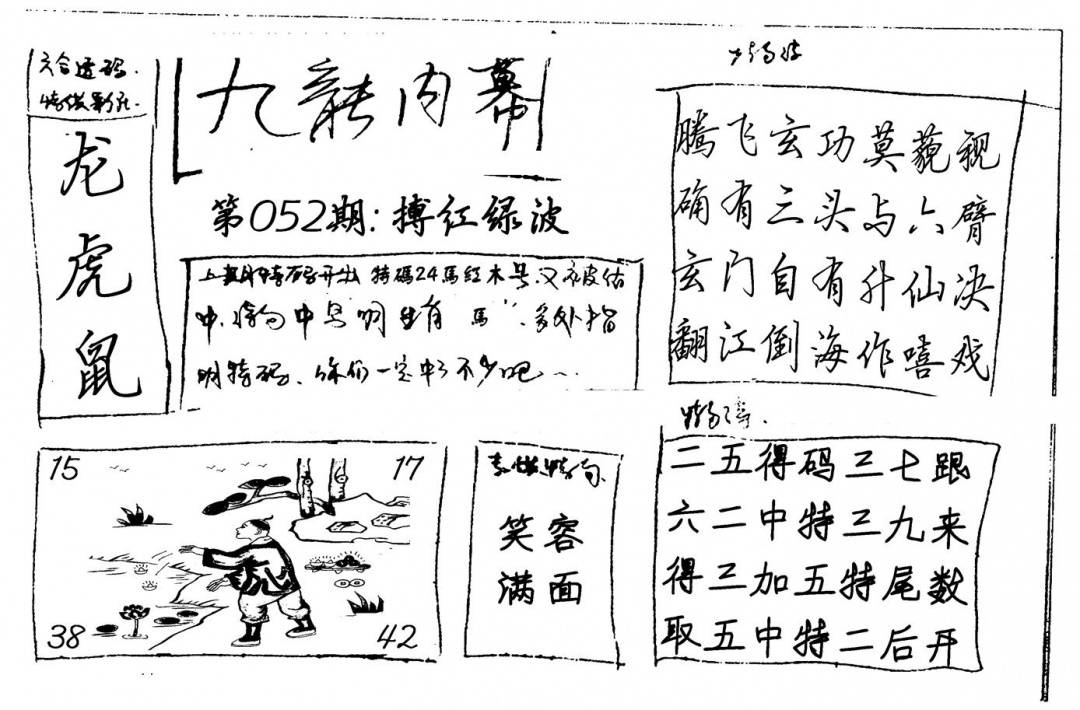 六合透码.
龙
虎
鼠
九龍内幕
第052期:搏红绿波
上期特码开出 特碼24馬红木号,又被估
中, 中 明 生肖 馬 多处指
明特码、你们一定中了不少吧~
腾飞玄功莫藐视
确有三头与六臂
玄门自有升仙决
翻江倒海作嘻戏
15 17
38 42
笑容
满面
二五得码三七跟
六二中特三九来
得三加五特尾数
取五中特二后开